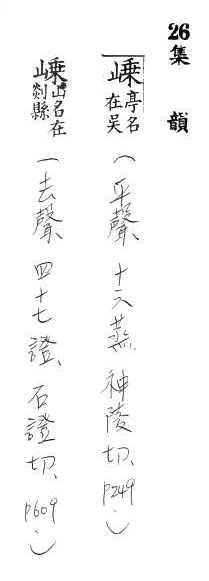 26集 韻
嵊亭名在吴(平聲、十六蒸、神陵切、P249.)
嵊山名在剡縣(去聲、四十七證、石證切、P609.)